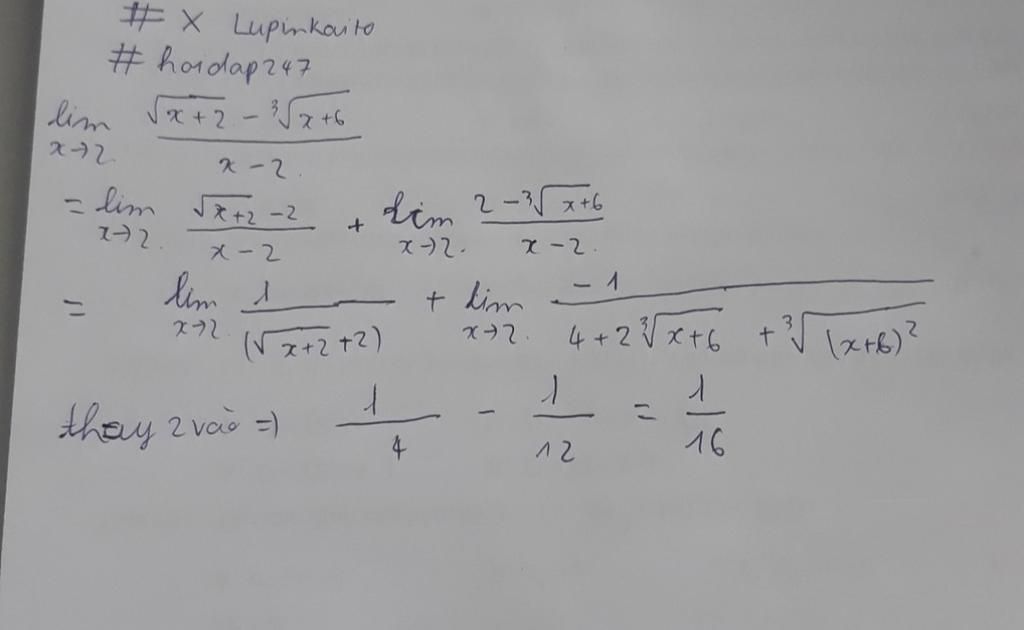 # X Lupinkaito
# hoidap247
lim x→2 (√(x+2) - ∛(x+6))/(x-2)
= lim x→2 (√(x+2) - 2)/(x-2) + lim x→2 (2 - ∛(x+6))/(x-2)
= lim x→2 1/(√(x+2) + 2) + lim x→2 -1/(4 + 2∛(x+6) + ∛((x+6)²))
thay 2 vào => 1/4 - 1/12 = 1/16